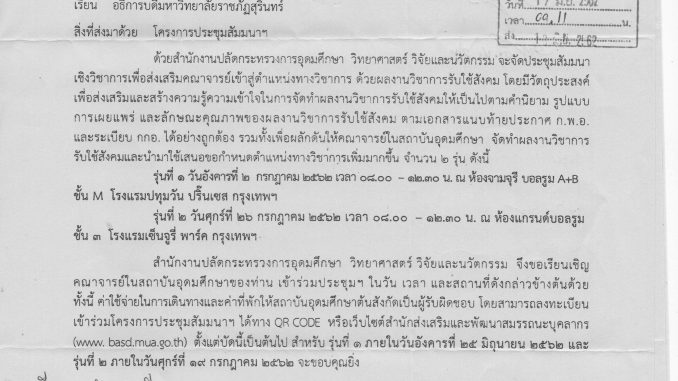 เรียน อธิการบดีมหาวิทยาลัยราชภัฏสุรินทร์
วันที่
เวลา 09.11 น.
สิ่งที่ส่งมาด้วย โครงการประชุมสัมมนาฯ
ด้วยสำนักงานปลัดกระทรวงการอุดมศึกษา วิทยาศาสตร์ วิจัยและนวัตกรรม จะจัดประชุมสัมมนา
เชิงวิชาการเพื่อส่งเสริมคณาจารย์เข้าสู่ตำแหน่งทางวิชาการ ด้วยผลงานวิชาการรับใช้สังคม โดยมีวัตถุประสงค์
เพื่อส่งเสริมและสร้างความรู้ความเข้าใจในการจัดทำผลงานวิชาการรับใช้สังคมให้เป็นไปตามคำนิยาม รูปแบบ
การเผยแพร่ และลักษณะคุณภาพของผลงานวิชาการรับใช้สังคม ตามเอกสารแนบท้ายประกาศ ก.พ.อ.
และระเบียบ กกอ. ได้อย่างถูกต้อง รวมทั้งเพื่อผลักดันให้คณาจารย์ในสถาบันอุดมศึกษา จัดทำผลงานวิชาการ
รับใช้สังคมและนำมาใช้เสนอขอกำหนดตำแหน่งทางวิชาการเพิ่มมากขึ้น จำนวน ๒ รุ่น ดังนี้
รุ่นที่ ๑ วันอังคารที่ ๒ กรกฎาคม ๒๕๖๒ เวลา ๐๘.๐๐ – ๑๒.๓๐ น. ณ ห้องจามจุรี บอลรูม A+B
ชั้น M โรงแรมปทุมวัน ปริ๊นเซส กรุงเทพฯ
รุ่นที่ ๒ วันศุกร์ที่ ๒๖ กรกฎาคม ๒๕๖๒ เวลา ๐๘.๐๐ – ๑๒.๓๐ น. ณ ห้องแกรนด์บอลรูม
ชั้น ๓ โรงแรมเซ็นจูรี่ พาร์ค กรุงเทพฯ
สำนักงานปลัดกระทรวงการอุดมศึกษา วิทยาศาสตร์ วิจัยและนวัตกรรม จึงขอเรียนเชิญ
คณาจารย์ในสถาบันอุดมศึกษาของท่าน เข้าร่วมประชุมฯ ในวัน เวลา และสถานที่ดังกล่าวข้างต้นด้วย
ทั้งนี้ ค่าใช้จ่ายในการเดินทางและค่าที่พักให้สถาบันอุดมศึกษาต้นสังกัดเป็นผู้รับผิดชอบ โดยสามารถลงทะเบียน
เข้าร่วมโครงการประชุมสัมมนาฯ ได้ทาง QR CODE หรือเว็บไซต์สำนักส่งเสริมและพัฒนาสมรรถนะบุคลากร
(www. basd.mua.go.th) ตั้งแต่บัดนี้เป็นต้นไป สำหรับ รุ่นที่ ๑ ภายในวันอังคารที่ ๒๕ มิถุนายน ๒๕๖๒ และ
รุ่นที่ ๒ ภายในวันศุกร์ที่ ๑๙ กรกฎาคม ๒๕๖๒ จะขอบคุณยิ่ง